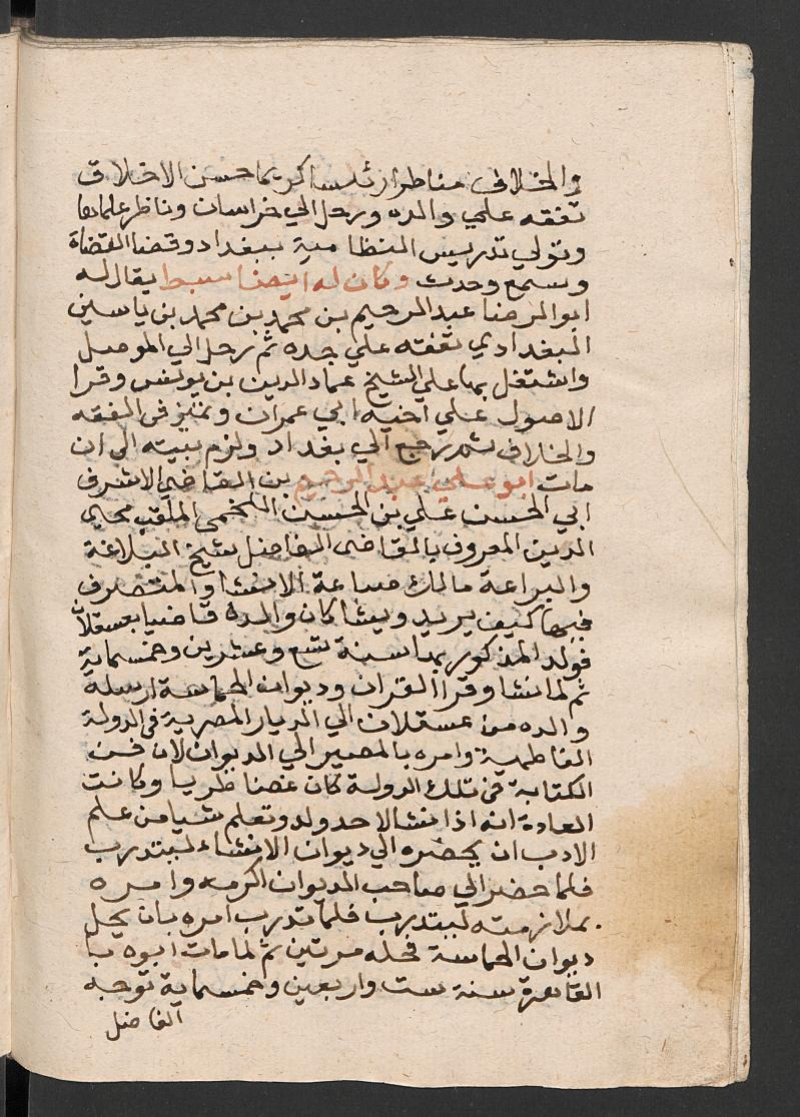 والخلاف مناظرا رئيسا كريما حسن الاخلاق
تفقه علي والده ورحل الي خراسان وناظر علماها
وتولي تدريس النظامية ببغداد وقضا القضاة
وسمع وحدث وكان له ايضا سبط يقال له
ابو الرضا عبد الرحيم بن محمد بن محمد بن ياسين
البغدادي تفقه علي جده ثم رحل الي الموصل
واشتغل بها علي الشيخ عماد الدين بن يونس وقرا
الاصول علي اخيه ابي عمران وتميز في الفقه
والخلاف ثم رجع الي بغداد ولزم بيته الي ان
مات ابو علي عبد الرحيم بن القاضي الاشرف
ابي الحسن علي بن الحسين اللخمي الملقب محيي
الدين المعروف بالقاضي الفاضل شيخ البلاغة
والبراعة مالك صناعة الانشا والمتصرف
فيها كيف يريد ويشا كان والده قاضيا بعسقلان
فولد المذكور بها سنة تسع وعشرين وخمسماية
ثم لما نشا وقرا القران وديوان الحماسة ارسله
والده من عسقلان الي الديار المصرية في الدولة
الفاطمية وامره بالمصير الي الديوان لان فن
الكتابة في تلك الدولة كان غضا طريا وكانت
العادة انه اذا نشا لاحد ولد وتعلم شيا من علم
الادب ان يحضره الي ديوان الانشاء ليتدرب
فلما حضر الي صاحب الديوان اكرمه وامره
بملازمته ليتدرب فلما تدرب امره بان يحل
ديوان الحماسة فحله مرتين ثم لما مات ابوه با
القاهرة سنة ست واربعين وخمسماية توجه
الفاضل